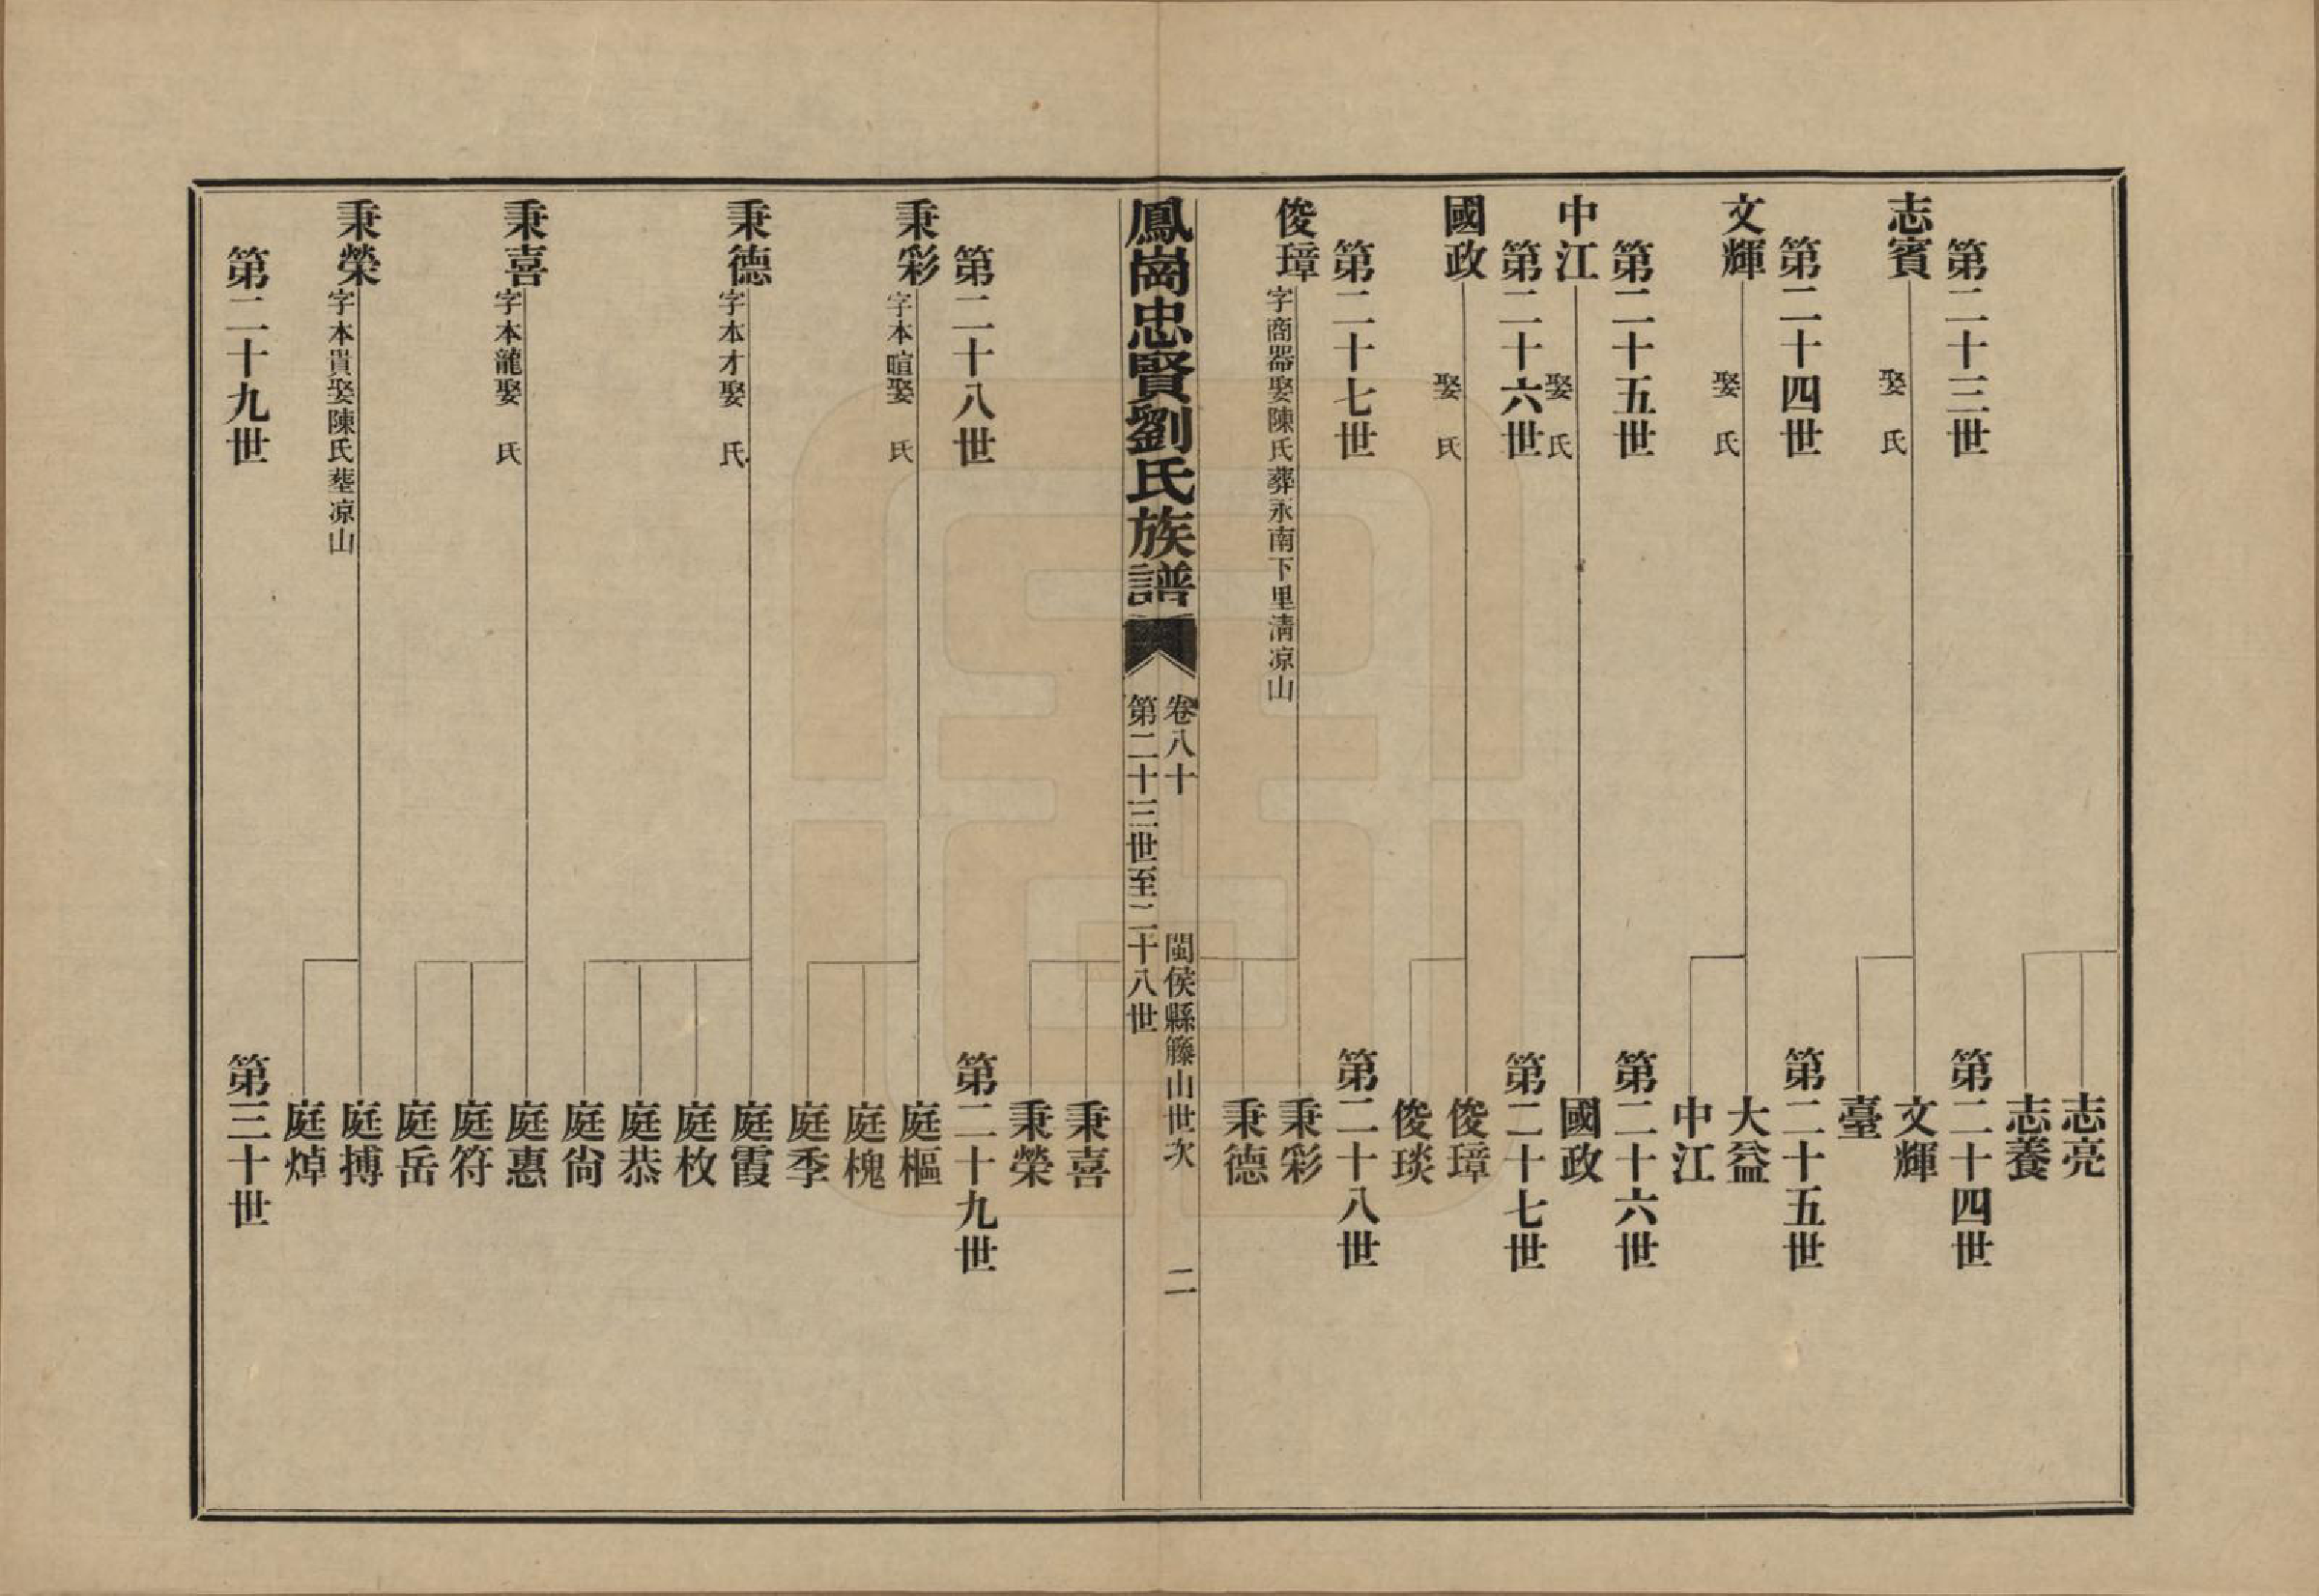 志亮
志養
第二十三世
第二十四世
志賓
娶　氏
文輝
臺
第二十四世
第二十五世
文輝
娶　氏
大益
中江
第二十五世
第二十六世
中江
娶　氏
國政
第二十六世
第二十七世
國政
娶　氏
俊璋
俊琰
第二十七世
第二十八世
俊璋
字商器娶陳氏葬永南下里清凉山
秉彩
秉德
鳳崗忠賢劉氏族譜
卷八十
閩侯縣籐山世次
二
第二十三世至二十八世
秉喜
秉榮
第二十八世
第二十九世
秉彩
字本暄娶　氏
庭樞
庭槐
庭季
秉德
字本才娶　氏
庭霞
庭枚
庭恭
庭尙
秉喜
字本龍娶　氏
庭惠
庭符
庭岳
秉榮
字本貴娶陳氏塟凉山
庭搏
庭焯
第二十九世
第三十世